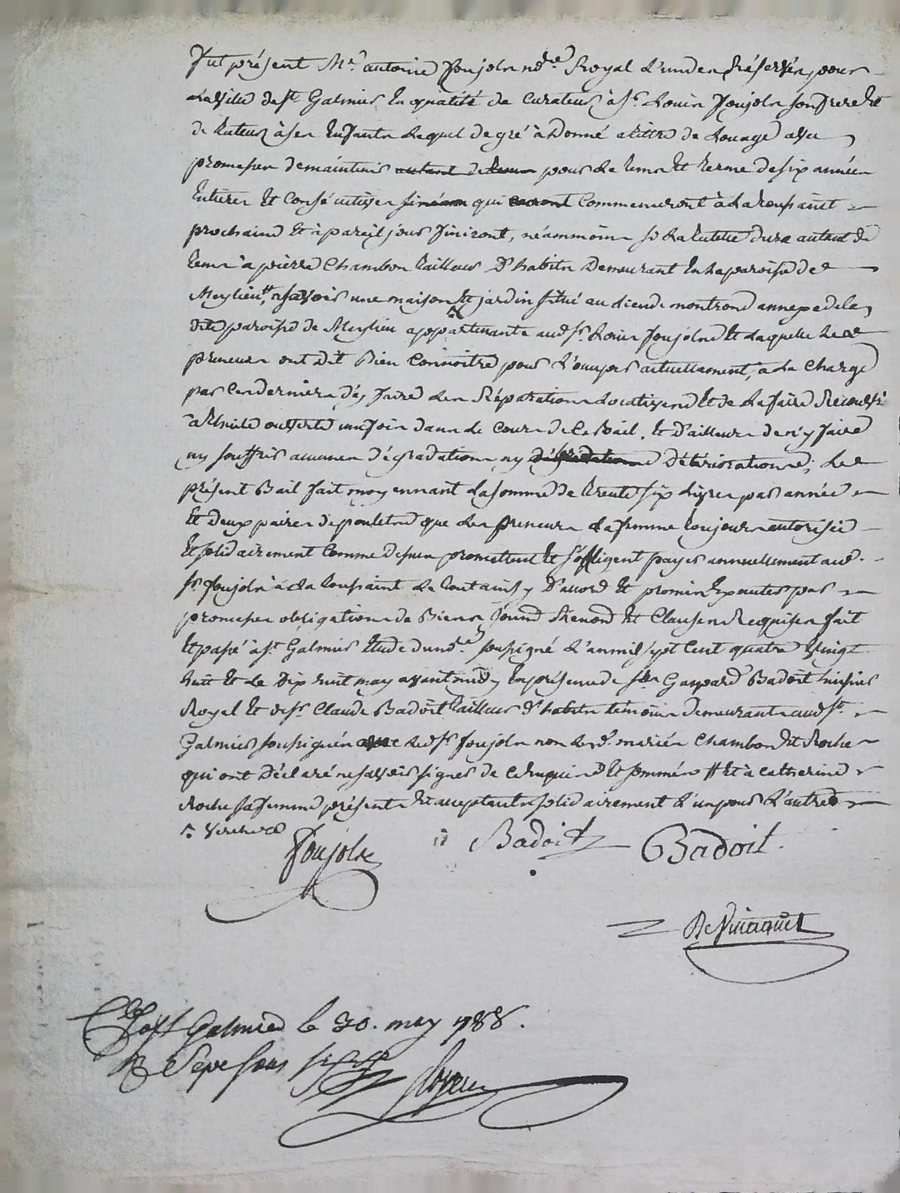 fut présent Mr. antoine Joujoln nore. Royal l'un des Réservés pour
La Ville de St Galmier En qualité de Curateur à Sr. Louis Joujoln son frere Et
de tuteur à ses Enfants Lequel de gré à donné a titre de Louage avec
promesses de maintenir autant de tems pour de tems Et terme de six années
Entieres Et Consécutives qui Commenceront à La toussaint
prochaine Et à pareil jour finiront, néammoins sy La tutelle dure autant de
tems à pierre Chambon tailleur D'habits Demeurant En La paroisse de
Meylieu, # a savoir une maison Et jardin situé au lieu de montrond annexe de la
dite paroisse de Meylieu appartenante aud. Sr. Louis Joujoln Et Laquelle Les
preneurs ont dit Bien Connoître pour L'occuper actuellement, à la Charge
par Ces derniers d'y faire Les Réparations Locatives Et de La faire Recouvrir
à thuile ouverte une fois dans Le Cours de Ce Bail, Et D'ailleurs de n'y faire
ny souffrir aucunes dégradations ny dégradations Détériorations; Le
présent Bail fait moyennant La somme de trente six Livres par année
Et deux paires de poulets que Les preneurs La femme toujours autorisée
Et solidairement Comme dessus promettent Et s'obligent payer annuellement aud.
Sr. Joujoln à La toussaint De tout ainsy D'accord Et promis Exécuter par
promesses obligations de Biens Soumd. Renond. Et Clauses Requises fait
Et passé à St. Galmier Etude du nore. soussigné L'an mil sept Cent quatre Vingt
huit Et Le Dix huit may avant midy En présence de Sr. Gaspard Badoit huissier
Royal Et de Sr. Claude Badoit tailleur D'habits témoins demeurants aud. St.
Galmier soussignés avec Led. Sr. Joujoln non Les d. mariés Chambon Et Roche
qui ont Déclaré ne savoir signer de Ce Enquis Et sommés # Et à Catherine
Roche sa femme présents Et acceptants solidairement L'un pour L'autre
Joujoln Badoit Badoit
Clé à St Galmier le 30. may 1788.
R Sept sous